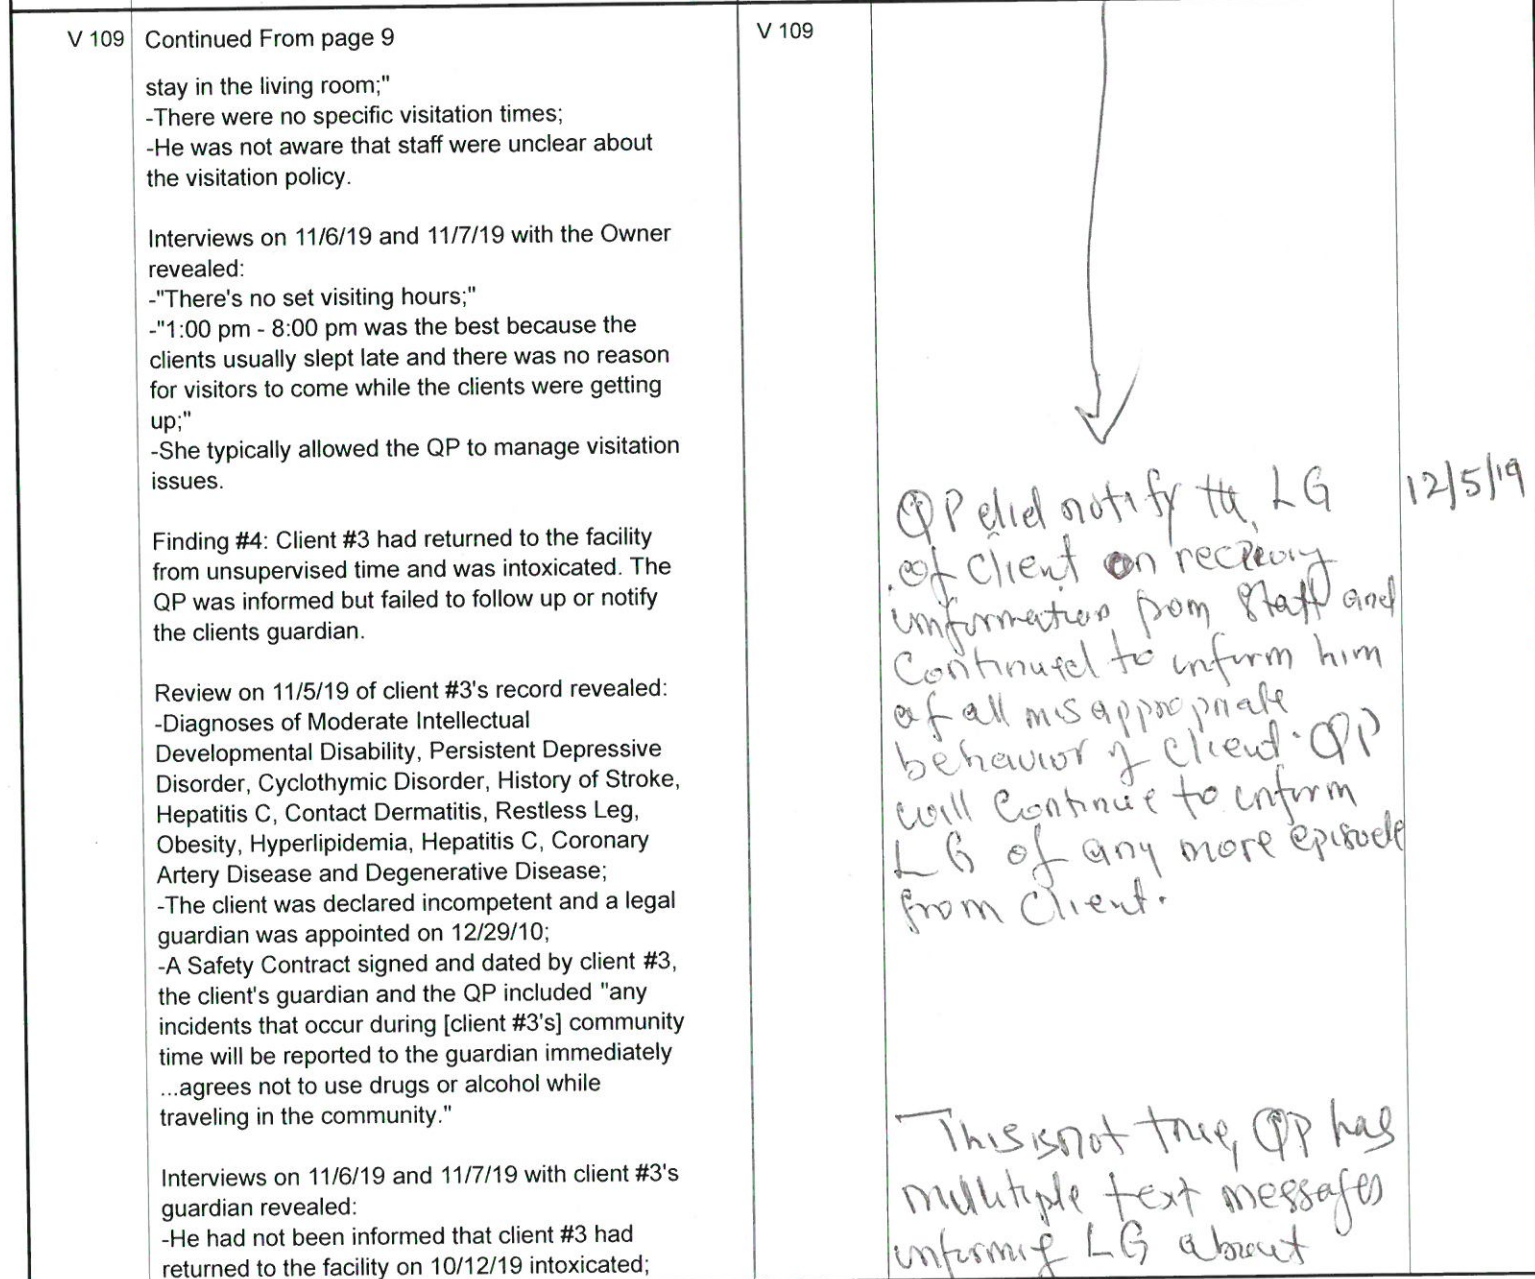 V 109
Continued From page 9
stay in the living room;"
-There were no specific visitation times;
-He was not aware that staff were unclear about
the visitation policy.
Interviews on 11/6/19 and 11/7/19 with the Owner
revealed:
-"There's no set visiting hours;"
-"1:00 pm - 8:00 pm was the best because the
clients usually slept late and there was no reason
for visitors to come while the clients were getting
up;"
-She typically allowed the QP to manage visitation
issues.
Finding #4: Client #3 had returned to the facility
from unsupervised time and was intoxicated. The
QP was informed but failed to follow up or notify
the clients guardian.
Review on 11/5/19 of client #3's record revealed:
-Diagnoses of Moderate Intellectual
Developmental Disability, Persistent Depressive
Disorder, Cyclothymic Disorder, History of Stroke,
Hepatitis C, Contact Dermatitis, Restless Leg,
Obesity, Hyperlipidemia, Hepatitis C, Coronary
Artery Disease and Degenerative Disease;
-The client was declared incompetent and a legal
guardian was appointed on 12/29/10;
-A Safety Contract signed and dated by client #3,
the client's guardian and the QP included "any
incidents that occur during [client #3's] community
time will be reported to the guardian immediately
...agrees not to use drugs or alcohol while
traveling in the community."
Interviews on 11/6/19 and 11/7/19 with client #3's
guardian revealed:
-He had not been informed that client #3 had
returned to the facility on 10/12/19 intoxicated;
V 109
QP did notify the LG
of client on
information from staff and
Continued to inform him
of all misappropriate
behavior of client. QP
will Continue to inform
LG of any more episode
from Client.
This is not true, QP has
multiple text messages
informing LG about
12/5/19